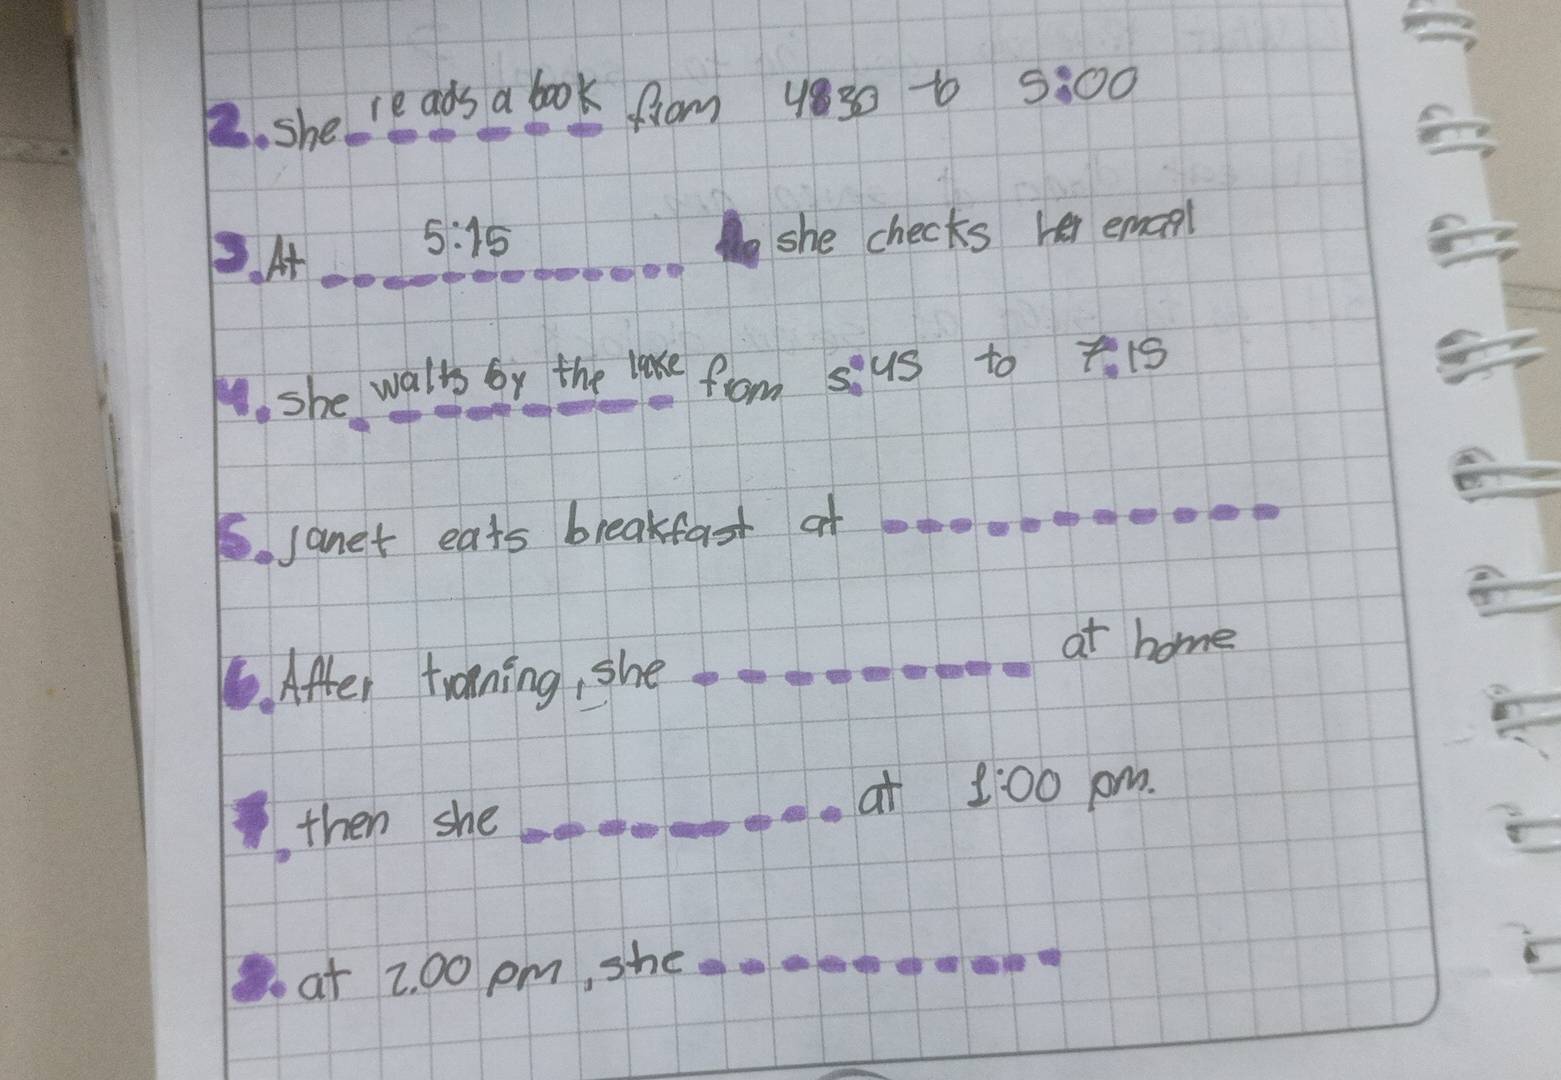 2. she reads a book from 4:30 to 5:00
3. At 5:15 she checks her email
4. she walks by the lake from 5:45 to 7:15
5. Janet eats breakfast at
6. After training, she at home
7. then she at 1:00 pm.
8. at 2.00 pm, she